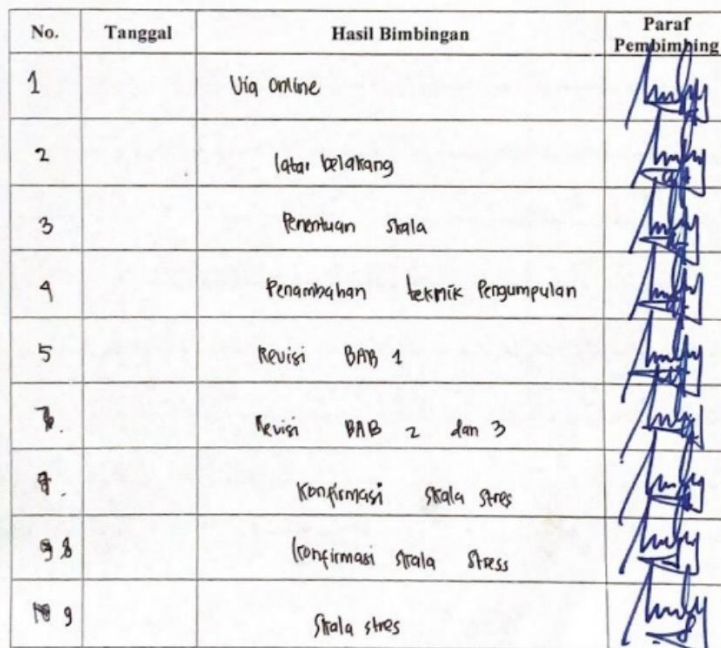 No. Tanggal Hasil Bimbingan Paraf Pembimbing
1 Via Online
2 latar belakang
3 Penentuan skala
4 Penambahan teknik Pengumpulan
5 Revisi BAB 1
Revisi BAB 2 dan 3
7 Konfirmasi skala stres
8 Konfirmasi skala stress
9 Skala stres